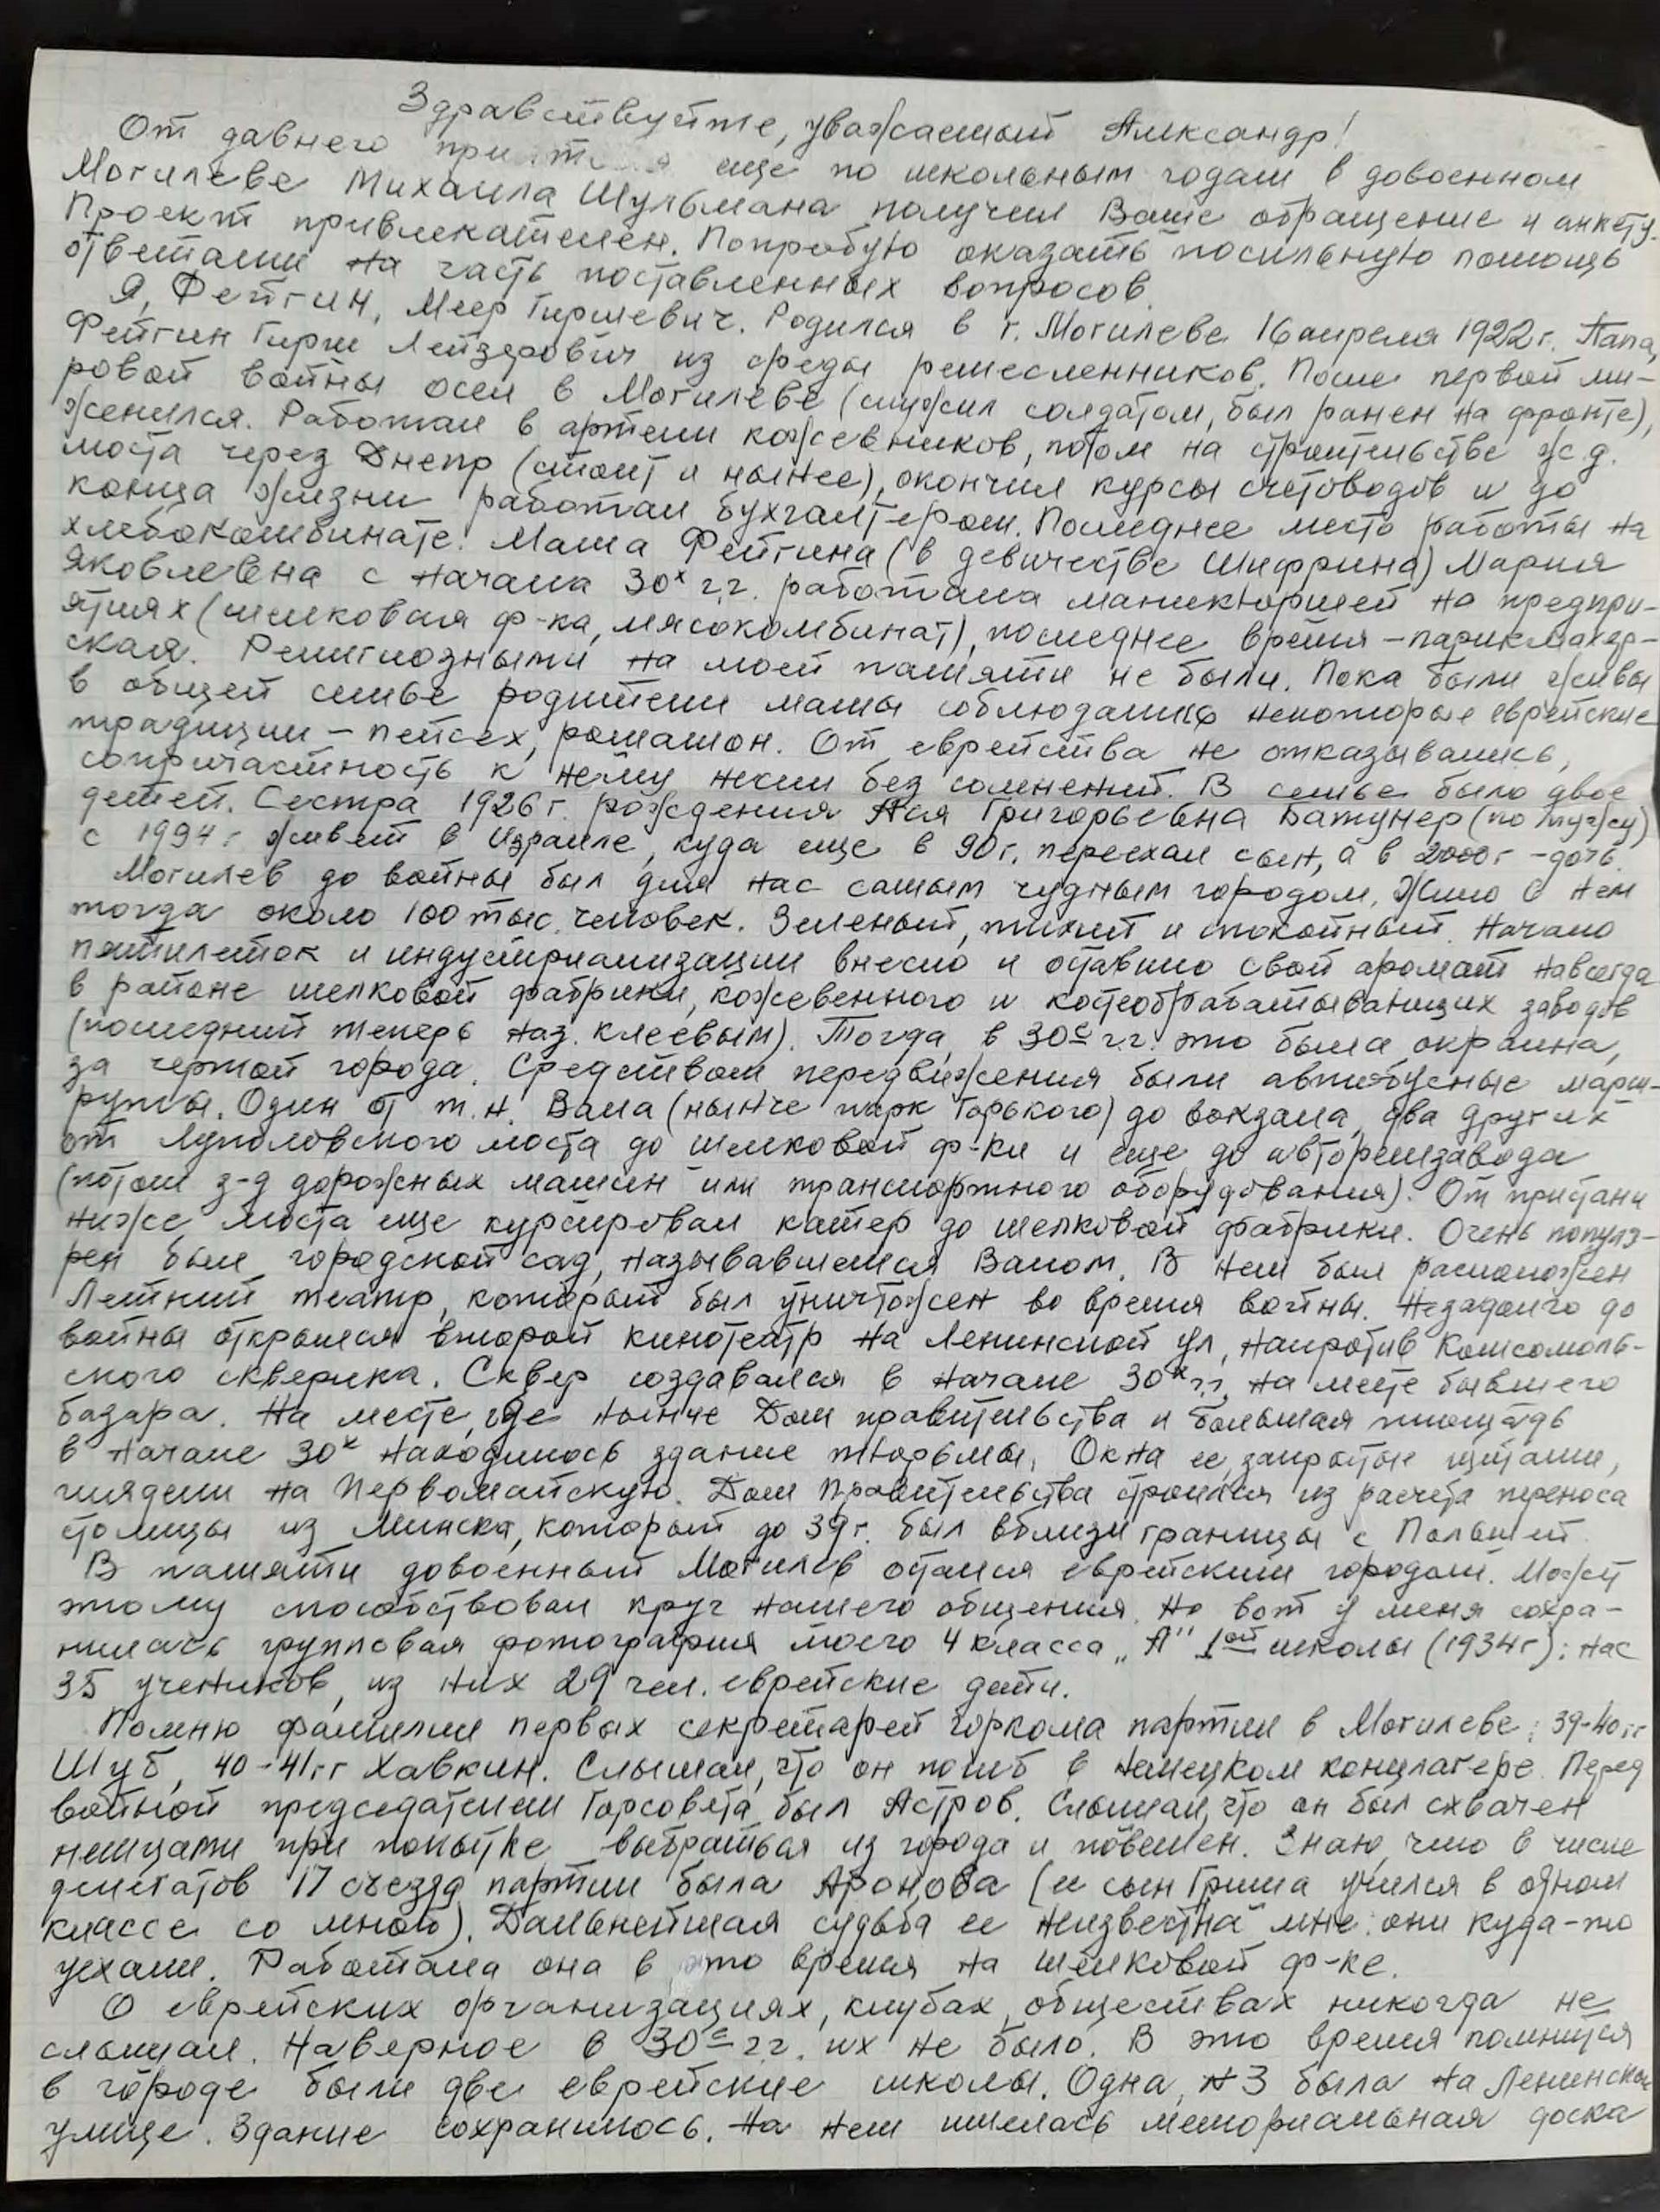 Здравствуйте, уважаемый Александр!
От давнего приятеля еще по школьным годам в довоенном
Могилеве Михаила Шульмана получил Ваше обращение и анкету.
Проект привлекателен. Попробую оказать посильную помощь
ответами на часть поставленных вопросов.
Я, Фейгин, Меер Гиршевич. Родился в г. Могилеве 16 апреля 1922 г. Папа,
Фейгин Гирш Лейзерович из среды ремесленников. После первой ми-
ровой войны осел в Могилеве (служил солдатом, был ранен на фронте),
женился. Работал в артели кожевников, потом на строительстве ж.д.
моста через Днепр (стоит и ныне), окончил курсы счетоводов и до
конца жизни работал бухгалтером. Последнее место работы на
хлебокомбинате. Мама Фейгина (в девичестве Шифрина) Мария
Яковлевна с начала 30х г.г. работала маникюршей на предпри-
ятиях (шелковая ф-ка, мясокомбинат), последнее время - парикмахер-
ская. Религиозными на моей памяти не были. Пока были живы
в общей семье родители мамы соблюдались некоторые еврейские
традиции - пейсех, рошашон. От еврейства не отказывались,
сопричастность к нему несли без сомнений. В семье было двое
детей. Сестра 1926 г. рождения Ася Григорьевна Батунер (по мужу)
с 1994 г. живет в Израиле, куда еще в 90 г. переехал сын, а в 2000 г - дочь.
Могилев до войны был для нас самым чудным городом. Жило в нем
тогда около 100 тыс. человек. Зеленый, тихий и спокойный. Начало
пятилеток и индустриализации внесло и оставило свой аромат навсегда
в районе шелковой фабрики, кожевенного и костеобрабатывающих заводов
(последний теперь наз. клеевым). Тогда, в 30е г.г. это была окраина,
за чертой города. Средством передвижения были автобусные марш-
руты. Один от т.н. Вала (нынче парк Горького) до вокзала, два других
от Луполовского моста до шелковой ф-ки и еще до авторемзавода
(потом з-д дорожных машин или транспортного оборудования). От пристани
ниже моста еще курсировал катер до шелковой фабрики. Очень популя-
рен был городской сад, называвшемся Валом. В нем был расположен
Летний театр, который был уничтожен во время войны. Незадолго до
войны открылся второй кинотеатр на Ленинской ул, напротив Комсомоль-
ского скверика. Сквер создавался в начале 30х г.г. на месте бывшего
базара. На месте, где нынче Дом правительства и большая площадь
в начале 30х находилось здание тюрьмы. Окна ее, закрытые щитами,
глядели на Первомайскую. Дом Правительства строился из расчета переноса
столицы из Минска, который до 39 г. был вблизи границы с Польшей.
В памяти довоенный Могилев остался еврейским городом. Может
этому способствовал круг нашего общения. Но вот у меня сохра-
нилась групповая фотография моего 4 класса „А" 1ой школы (1934 г): нас
35 учеников, из них 29 чел. еврейские дети.
Помню фамилии первых секретарей горкома партии в Могилеве: 39-40 гг
Шуб, 40-41 гг Хавкин. Слышал, что он погиб в немецком концлагере. Перед
войной председателем Горсовета был Астров. Слышал, что он был схвачен
немцами при попытке выбраться из города и повешен. Знаю, что в числе
делегатов 17 съезда партии была Аронова (ее сын Гриша учился в одном
классе со мной). Дальнейшая судьба ее неизвестна мне: они куда-то
уехали. Работала она в это время на шелковой ф-ке.
О еврейских организациях, клубах, обществах никогда не
слышал. Наверное в 30е г.г. их не было. В это время помнится
в городе были две еврейские школы. Одна, N3 была на Ленинской
улице. Здание сохранилось. На нем имелась мемориальная доска